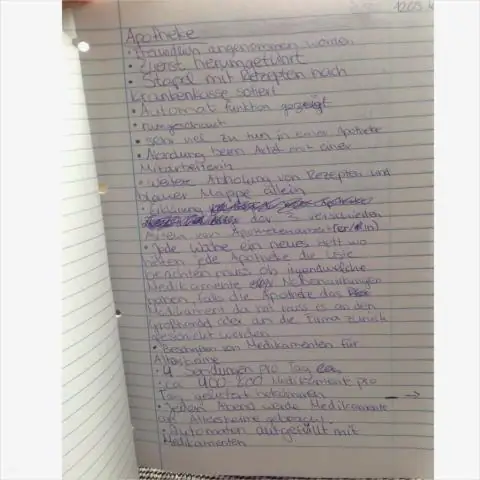 12.05.
Apotheke
• Freundlich angenommen worden
• Zuerst herumgeführt
• Stapel mit Rezepten nach
Krankenkasse sotiert
• Automat funktion gezeigt
• rumgeschaut
• sehr viel zu tun in einer Apotheke
• Abholung beim Artzt mit einer
Mitarbeiterin
• weitere Abholung von Rezepten und
blauer Mappe allein
• Erklärung
der 3 verschieden
zum
• Jede Woche ein neues Heft wo
jede Apotheke die Liste
muss ob irgendwelche
Medikamente Nebenwirkungen
haben, falls die Apotheke das
Medikament da hat muss es an den
Großhandel oder an die Firma zurück
geschickt werden
• von Medikamenten für
Altersheime
• 4 Sendungen pro Tag
• ca. 400 Medikament pro
Tag geliefert bekommen
• Jeden Abend werde Medikamente
Altersheime gebracht
• Automaten aufgefüllt mit
Medikamenten